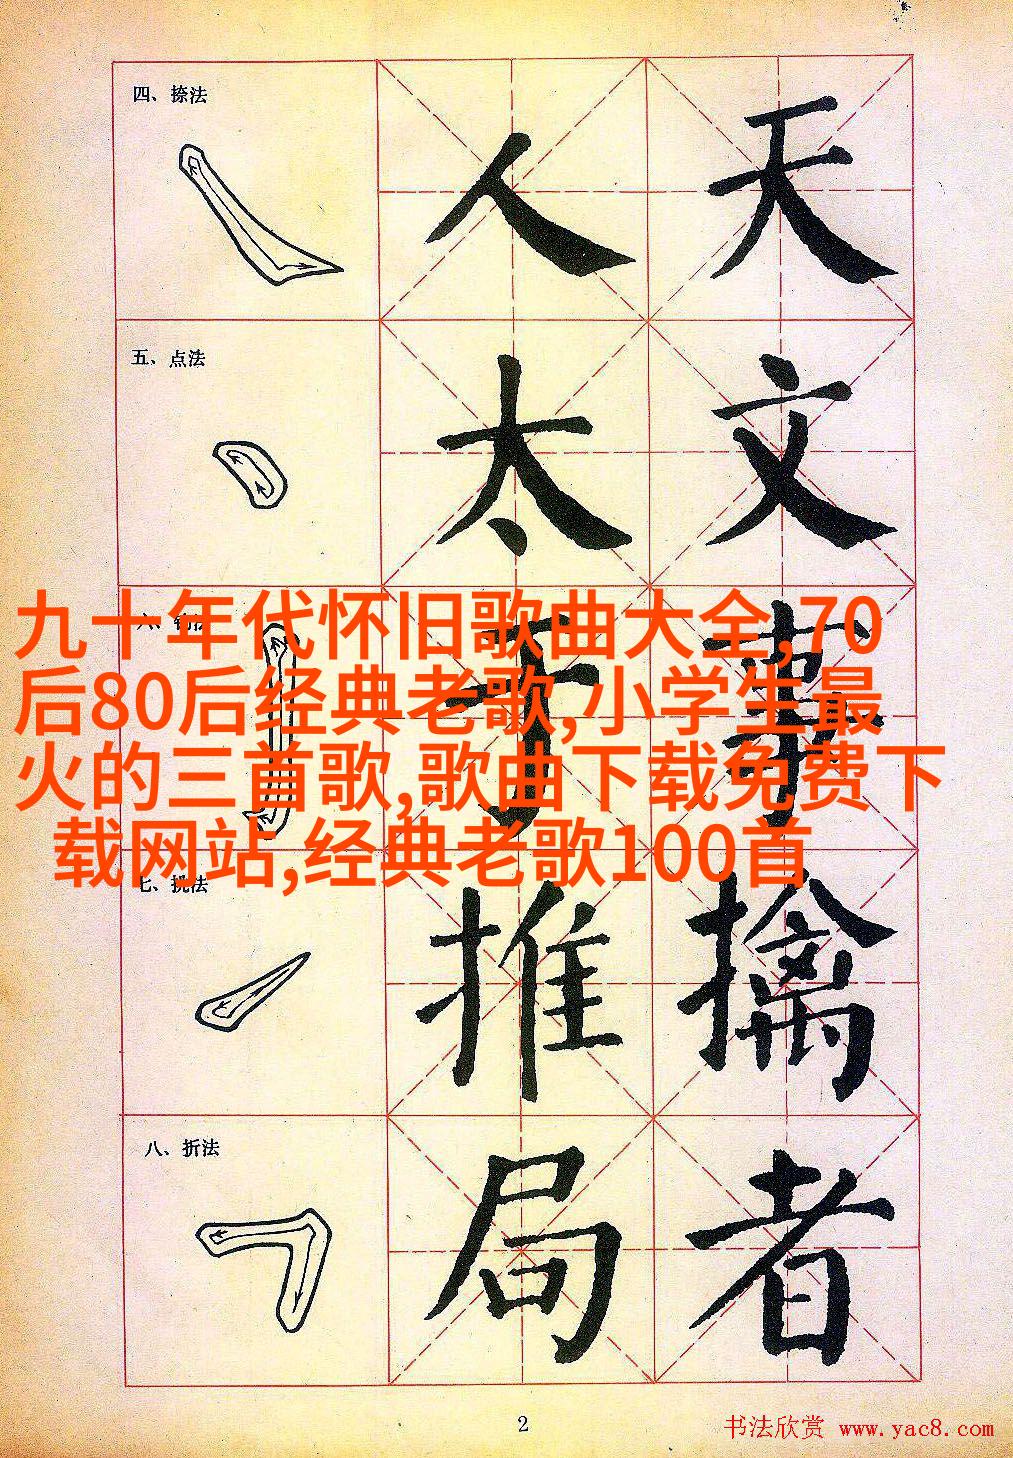 四、捺法
人
天
五、点法
太
文
九十年代怀旧歌曲大全,70
后80后经典老歌,小学生最
火的三首歌,歌曲下载免费下
载网站,经典老歌100首
六、钩法
于
事
七、挑法
推
擒
八、折法
局
者
2
书法欣赏 www.yac8.com